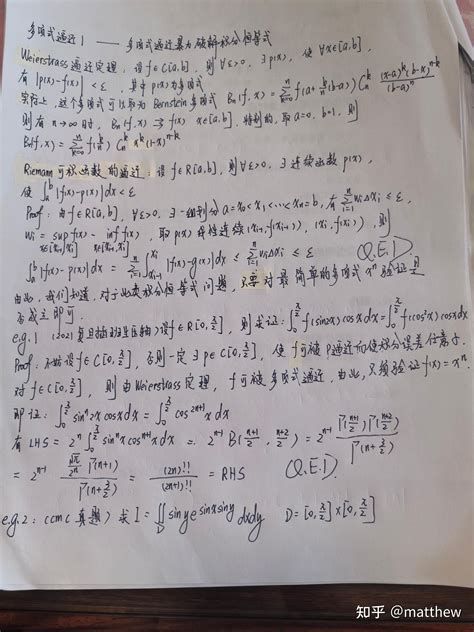 多项式逼近 1 —— 多项式逼近暴力破解积分恒等式
Weierstrass 逼近定理,设 f∈C[a,b],则 ∀ε>0,∃ p(x),使 ∀x∈[a,b],
有 |p(x)-f(x)| < ε,其中 p(x) 为多项式
实际上,这个多项式可以取为 Bernstein 多项式 Bn(f,x) = Σ_{k=0}^{n} f(a+k/n(b-a)) C_n^k (x-a)^k(b-x)^{n-k}/(b-a)^n
则有 n→∞ 时,Bn(f,x) ⇉ f(x) x∈[a,b],特别的,取 a=0,b=1,则
Bn(f,x) = Σ_{k=0}^{n} f(k/n) C_n^k x^k(1-x)^{n-k}
Riemann 可积函数的逼近:设 f∈R[a,b],则 ∀ε>0,∃ 连续函数 p(x),
使 ∫_a^b |f(x)-p(x)|dx < ε
Proof:由 f∈R[a,b],∀ε>0,∃ 一组划分 a=x₀<x₁<…<xₙ=b,有 Σ_{i=1}^{n} wᵢΔxᵢ ≤ ε,
wᵢ = sup f(x) - inf f(x),取 p(x) 线性连续 (x_{i-1}, f(x_{i-1})), (xᵢ, f(xᵢ)),则
x∈[x_{i-1},xᵢ] x∈[x_{i-1},xᵢ]
∫_a^b |f(x)-p(x)|dx = Σ_{i=1}^{n} ∫_{x_{i-1}}^{xᵢ} |f(x)-g(x)|dx ≤ Σ_{i=1}^{n} wᵢΔxᵢ ≤ ε Q.E.D
由此,我们知道,对于此类积分恒等式问题,只要对最简单的多项式 xⁿ 验证是
否成立即可.
e.g.1 (2021 复旦 压轴) 设 f∈R[0,π/2],则求证:∫_0^{π/2} f(sin2x)cosxdx = ∫_0^{π/2} f(cos²x)cosxdx
Proof:不妨设 f∈C[0,π/2],否则一定 ∃ p∈C[0,π/2],使 f 可被 p 逼近而使积分误差任意小.
对 f∈C[0,π/2],则由 Weierstrass 定理,f 可被多项式逼近,由此,只须验证 f(x)=xⁿ.
即证:∫_0^{π/2} sinⁿ2x cosxdx = ∫_0^{π/2} cos^{2n+1}x dx
有 LHS = 2ⁿ ∫_0^{π/2} sinⁿx cos^{n+1}x dx = 2^{n-1} B((n+1)/2, (n+2)/2) = 2^{n-1} Γ((n+1)/2)Γ((n+2)/2)/Γ(n+3/2)
= 2^{n-1} (√π/2ⁿ)Γ(n+1)/Γ(n+3/2) = (2n)!!/(2n+1)!! = RHS Q.E.D
e.g.2:(cmc 真题) 求 I = ∬_D siny e^{sinxsiny} dxdy D=[0,π/2]×[0,π/2]
知乎 @matthew